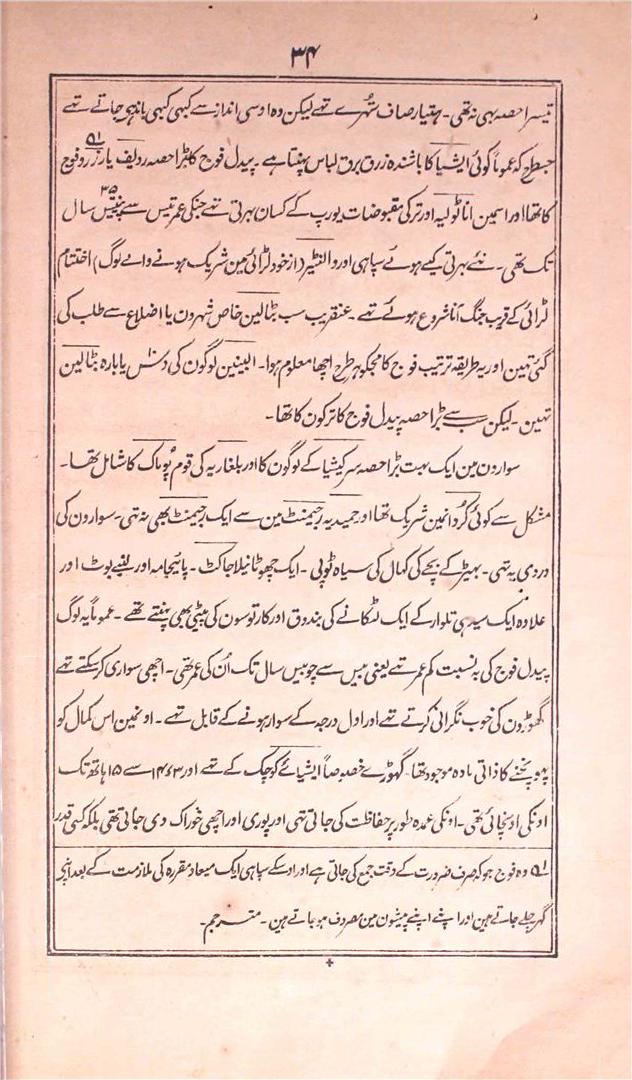 ۳۴
تیسرا حصہ بہی نہ تھی۔ ہتیار صاف ستُھرے تہے لیکن وہ اوسی انداز سے کبہی کبہی باندہی جاتے تہے
جسطرح کہ عموماً کوئی ایشیا کا باشندہ زرق برق لباس پہنتا ہے۔ پیدل فوج کا بڑا حصہ ردیف یا رزرو فوج
کا تھا اور اسمین اناٹولیہ اور ترکی مقبوضات یورپ کے کسان بہرتی تہے جنکی عمر تیس سے پینتیس ۳۵ سال
تک تھی۔ نئے بہرتی کیے ہوئے سپاہی اور والنٹیر (از خود لڑائی مین شریک ہونے والے لوگ) اختتام
لڑائی کے قریب جنگ آنا شروع ہوئے تہے۔ عنقریب سب بٹالین خاص شہرون یا اضلاع سے طلب کی
گئی تہین اور یہ طریقہ ترتیب فوج کا مجکو ہر طرح اچھا معلوم ہوا۔ البینین لوگون کی دس یا بارہ بٹالین
تہین۔ لیکن سب سے بڑا حصہ پیدل فوج کا ترکون کا تھا۔
سوارون مین ایک بہت بڑا حصہ سرکیشیا کے لوگون کا اور بلغاریہ کی قوم پوماک کا شامل تھا۔
مشکل سے کوئی کُرد انمین شریک تھا اور حمیدیہ رجیمنٹ مین سے ایک رجیمنٹ بھی نہ تہی۔ سوارون کی
وردی یہ تہی۔ بہیڑ کے بچے کی کہال کی سیاہ ٹوپی۔ ایک چھوٹا نیلا جاکٹ۔ پائیجامہ اور لنبے بوٹ اور
علاوہ ایک سیدہی تلوار کے ایک لٹکانے کی بندوق اور کارتوسون کی پیٹی بھی پہنتے تہے۔ عموماً یہ لوگ
پیدل فوج کی بہ نسبت کم عمر تہے یعنی بیس سے چوبیس سال تک اُن کی عمر تھی۔ اچھی سواری کر سکتے تہے
گھوڑون کی خوب نگرانی کرتے تہے اور اول درجہ کے سوار ہونے کے قابل تہے۔ اونمین اس کمال کو
پہونچنے کا ذاتی مادہ موجود تھا۔ گہوڑے خصوصاً ایشیائے کوچک کے تہے اور ۱۴۶۳ سے ۱۵ ہاتھ تک
اونکی اونچائی تھی۔ اونکی عمدہ طور پر حفاظت کی جاتی تہی اور پوری اور اچھی خوراک دی جاتی تھی بلکہ کسی قدر
۵۱ وہ فوج جو کہ صرف ضرورت کے وقت جمع کی جاتی ہے اور اوسکے سپاہی ایک میعاد مقررہ کی ملازمت کے بعد اپنی
گہر چلے جاتے ہین اور اپنے اپنے پیشون مین مصروف ہو جاتے ہین۔ مترجم۔